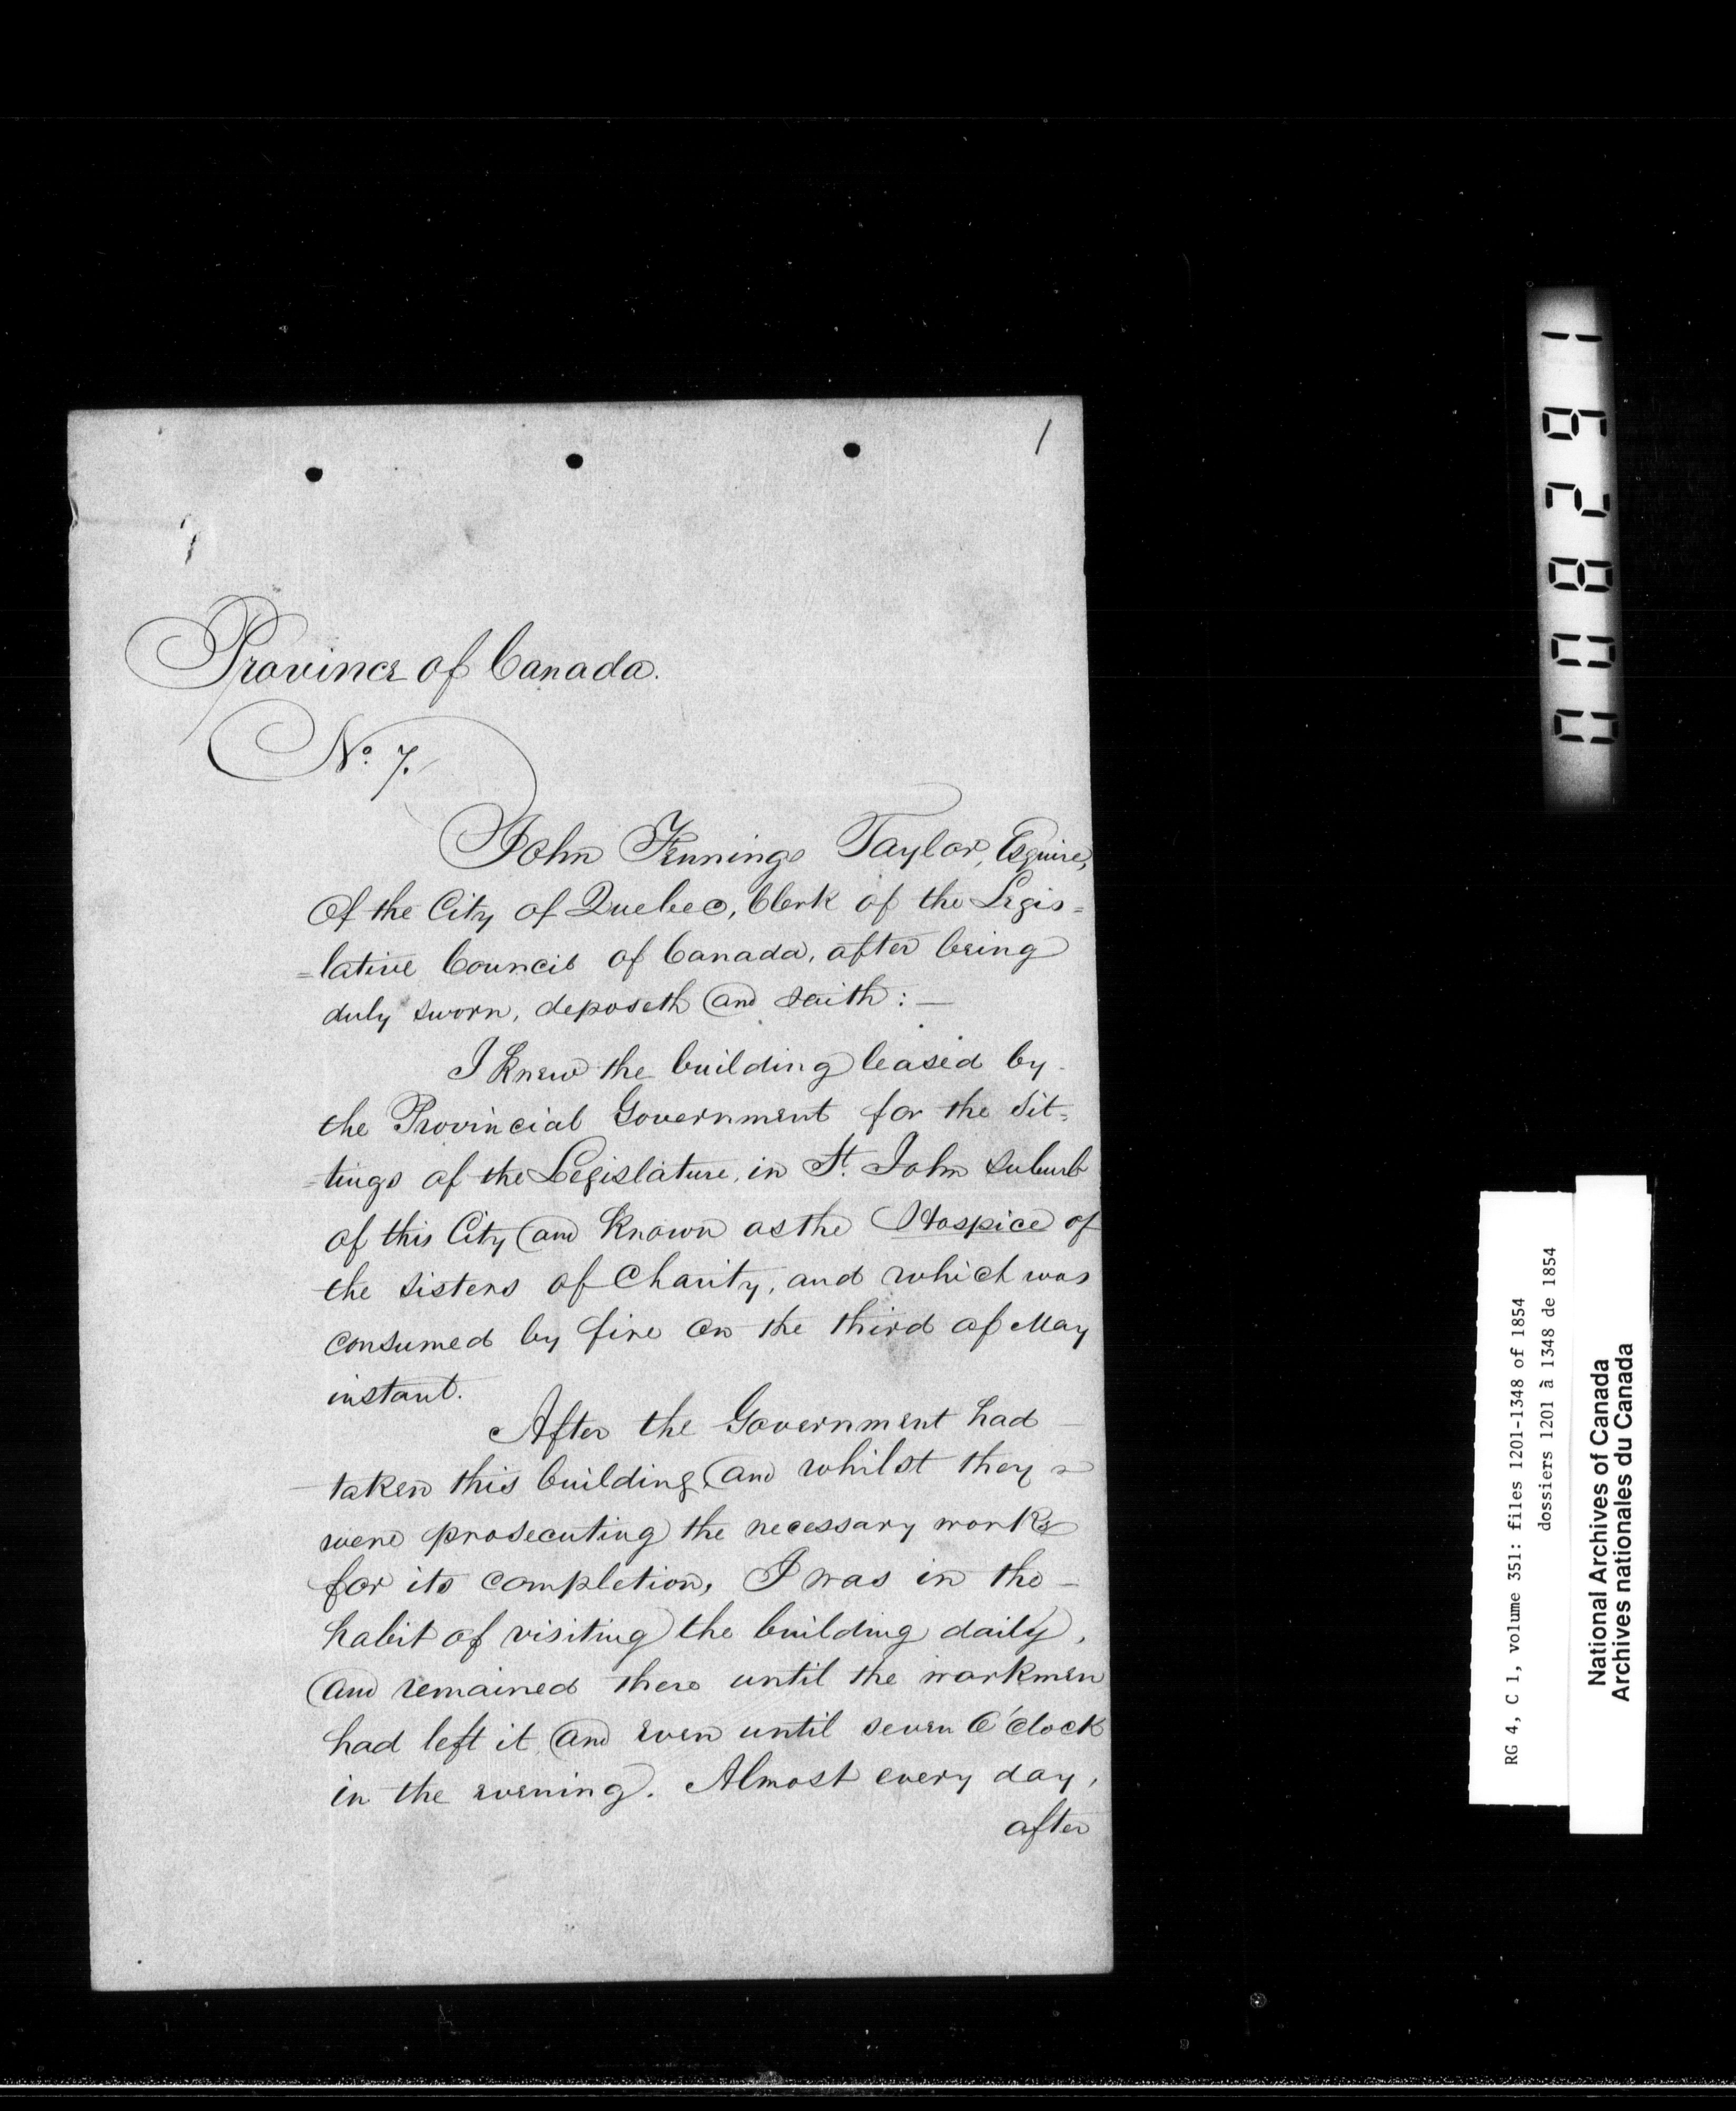 1
Province of Canada.
No. 7.
John Fennings Taylor, Esquire,
Of the City of Quebec, Clerk of the Legis=
=lative Council of Canada, after being
duly sworn, deposeth and saith: —
I knew the building leased by
the Provincial Government for the Sit=
=tings of the Legislature, in St. John Suburb
of this City and known as the Hospice of
the Sisters of Charity, and which was
consumed by fire on the third of May
instant.
After the Government had —
taken this building, and whilst they
were prosecuting the necessary works
for its completion, I was in the —
habit of visiting the building daily,
and remained there until the workmen
had left it and even until seven O'Clock
in the evening. Almost every day,
after
008291
RG 4, C 1, volume 351: files 1201-1348 of 1854
dossiers 1201 à 1348 de 1854
National Archives of Canada
Archives nationales du Canada